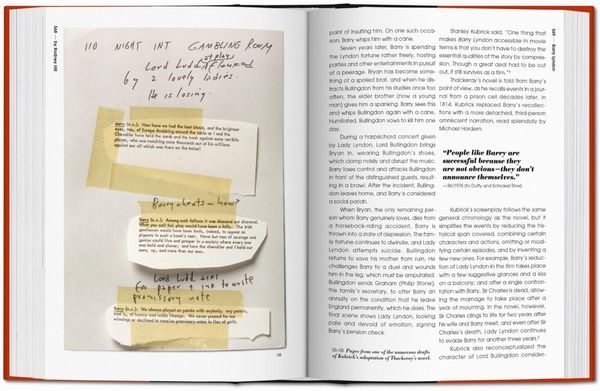 568 — by Rodney Hill
110 NIGHT INT GAMBLING ROOM
Lord Ludd at play
by 2 lovely ladies
He is losing.
Barry (o.s.): Now we had the best blood, and the brightest
eyes, too, of Europe throbbing around the table as I and the
Chevalier have held the cards and the bank against some terrible
player, who was matching some thousands out of his millions
against our all which was there on the baize!
Barry cheats — how?
Barry (o.s.): Among such fellows it was diamond cut diamond.
What you call fair play would have been a folly. The Irish
gentlemen would have been fools, indeed, to appear as
pigeons in such a hawk's nest. None but men of courage and
genius could live and prosper in a society where every one
was bold and clever; and here the chevalier and I held our
own; ay, and more than our own.
Lord Ludd asks
for paper + ink to write
promissory note
Barry (o.s.): We always played on parole with anybody: any person,
that is, of honour and noble lineage. We never pressed for our
winnings or declined to receive promissory notes in lieu of gold.
08
point of insulting him. On one such occa-
sion, Barry whips him with a cane.
Seven years later, Barry is spending
the Lyndon fortune rather freely, hosting
parties and other entertainments in pursuit
of a peerage. Bryan has become some-
thing of a spoiled brat, and when he dis-
tracts Bullingdon from his studies once too
often, the elder brother (now a young
man) gives him a spanking. Barry sees this
and whips Bullingdon again with a cane.
Humiliated, Bullingdon vows to kill him one
day.
During a harpsichord concert given
by Lady Lyndon, Lord Bullingdon brings
Bryan in, wearing Bullingdon's shoes,
which clomp noisily and disrupt the music.
Barry loses control and attacks Bullingdon
in front of the distinguished guests, result-
ing in a brawl. After the incident, Bulling-
don leaves home, and Barry is considered
a social pariah.
When Bryan, the only remaining per-
son whom Barry genuinely loves, dies from
a horseback-riding accident, Barry is
thrown into a state of depression. The fam-
ily fortune continues to dwindle, and Lady
Lyndon attempts suicide. Bullingdon
returns to save his mother from ruin. He
challenges Barry to a duel and wounds
him in the leg, which must be amputated.
Bullingdon sends Graham (Philip Stone),
the family's secretary, to offer Barry an
annuity on the condition that he leave
England permanently, which he does. The
final scene shows Lady Lyndon, looking
pale and devoid of emotion, signing
Barry's pension check.
Stanley Kubrick said, "One thing that
makes Barry Lyndon accessible in movie
terms is that you don't have to destroy the
essential qualities of the story by compres-
sion. Though a great deal had to be cut
out, it still survives as a film."
Thackeray's novel is told from Barry's
point of view, as he recalls events in a jour-
nal from a prison cell decades later, in
1814. Kubrick replaced Barry's recollec-
tions with a more detached, third-person
omniscient narration, read splendidly by
Michael Hordern.
"People like Barry are
successful because they
are not obvious—they don't
announce themselves."
—SK/1975 (to Duffy and Schickel/Time)
Kubrick's screenplay follows the same
general chronology as the novel, but it
simplifies the events by reducing the his-
torical span covered, combining certain
characters and actions, omitting or modi-
fying certain episodes, and by inventing a
few new ones. For example, Barry's seduc-
tion of Lady Lyndon in the film takes place
with a few suggestive glances and a kiss
on a balcony; and after a single confron-
tation with Barry, Sir Charles is dead, allow-
ing the marriage to take place after a
year of mourning. In the novel, however,
Sir Charles clings to life for two years after
his wife and Barry meet, and even after Sir
Charles's death, Lady Lyndon continues
to evade Barry for another three years.
Kubrick also reconceptualized the
character of Lord Bullingdon consider-
06–08 Pages from one of the numerous drafts
of Kubrick's adaptation of Thackeray's novel.
569 — Barry Lyndon